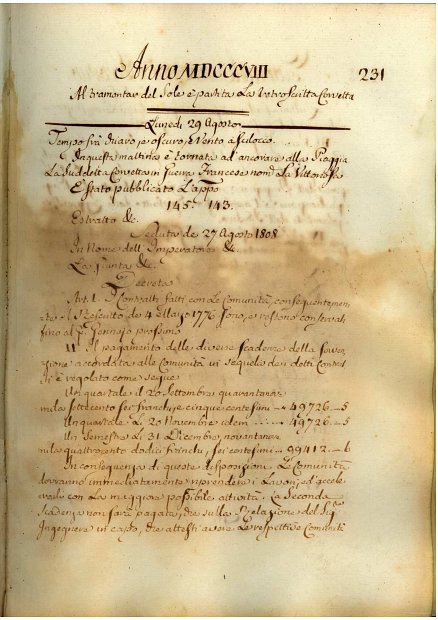 Anno MDCCCVIII 231
Al tramontar del Sole è partita La retroscritta Corvetta
Lunedi 29 Agosto
Tempo oscuro, e Vento a Scilocco
In questa mattina è tornata ad ancorare alla Piaggia
La Suddetta Corvetta in guerra Francese nom.
È stato pubblicato L'appo
145. 143.
Estratto &.
Seduta de 27 Agosto 1808
In Nome dell'Imperatore &.
La Giunta &.
Decreta
Art. I. I Contratti fatti con Le Comunità, conseguentemen-
te Rescritto de 4 1776 sono, e restano
fino al P. Gennajo prossimo
II. Il pagamento delle diverse scadenze della
zione accordata alle Comunità in sequela dei dotti Contrat-
ti è regolato come segue
Un quartale il 20 Settembre quarantanove
mila settecento sei franchi, e cinque centesimi — 49726 — 5
Un quartale Li 20 Novembre idem 49726 — 5
Un Semestre Li 31 Dicembre, novantanove
mila quattrocento dodici franchi, sei centesimi — 99412 — 6
In conseguenza di queste disposizioni Le Comunità
dovranno immediatamente riprendere i Lavori, ed accele-
rarli con La maggiore possibile attività. La Seconda
Scadenza non sarà pagata, che sulla Relazione del Sig.
Ingegnere in capo, che attesti avere Le respettive Comunità